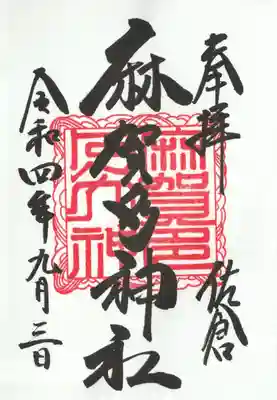 奉拝
佐倉
麻賀多神社
麻賀多
大神
令和四年九月三日